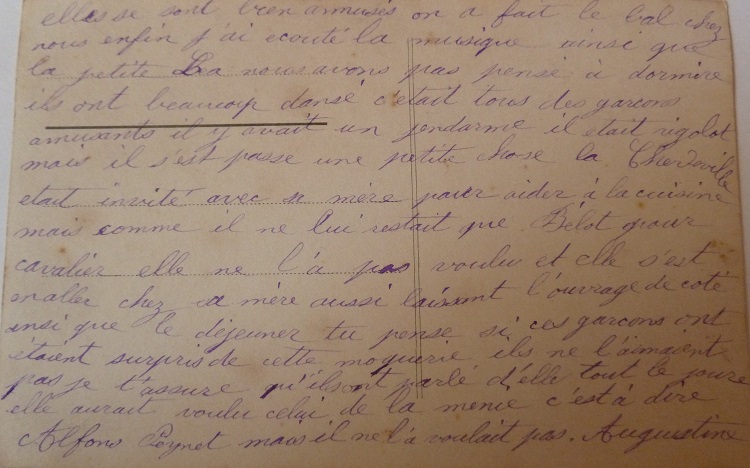 elles se sont bien amusés on a fait le bal chez
nous enfin j'ai ecouté la musique ainsi que
la petite La nous avons pas pensé à dormire
ils ont beaucoup dansé c'était tous des garcons
amusants il y avait un jendarme il était rigolot
mais il s'est passe une petite chose la Cherdeville
etait invité avec sa mère pour aider à la cuisine
mais comme il ne lui restait que Bélot pour
cavalier elle ne l'à pas voulu et elle s'est
en aller chez sa mère aussi laissant l'ouvrage de coté
insi que le déjeuner tu pense si ces garcons ont
étaient surpris de cette moquerie ils ne l'aimaient
pas je t'assure qu'ils ont parlé d'elle tout le joure
elle aurait voulu celui de la meme c'est à dire
Alfons Poynet mais il ne l'à voulait pas. Augustine